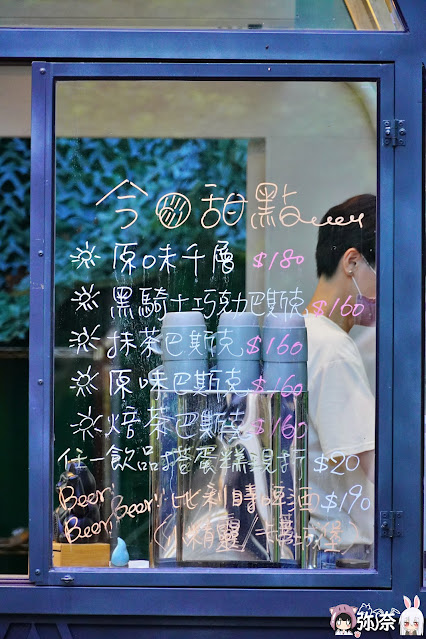 今日甜點
原味千層 $180
黑騎士巧克力巴斯克 $160
抹茶巴斯克 $160
原味巴斯克 $160
焙茶巴斯克 $160
任一飲品搭蛋糕現折 $20
Beer Beer!! 比利時啤酒 $190
Beer
弥奈